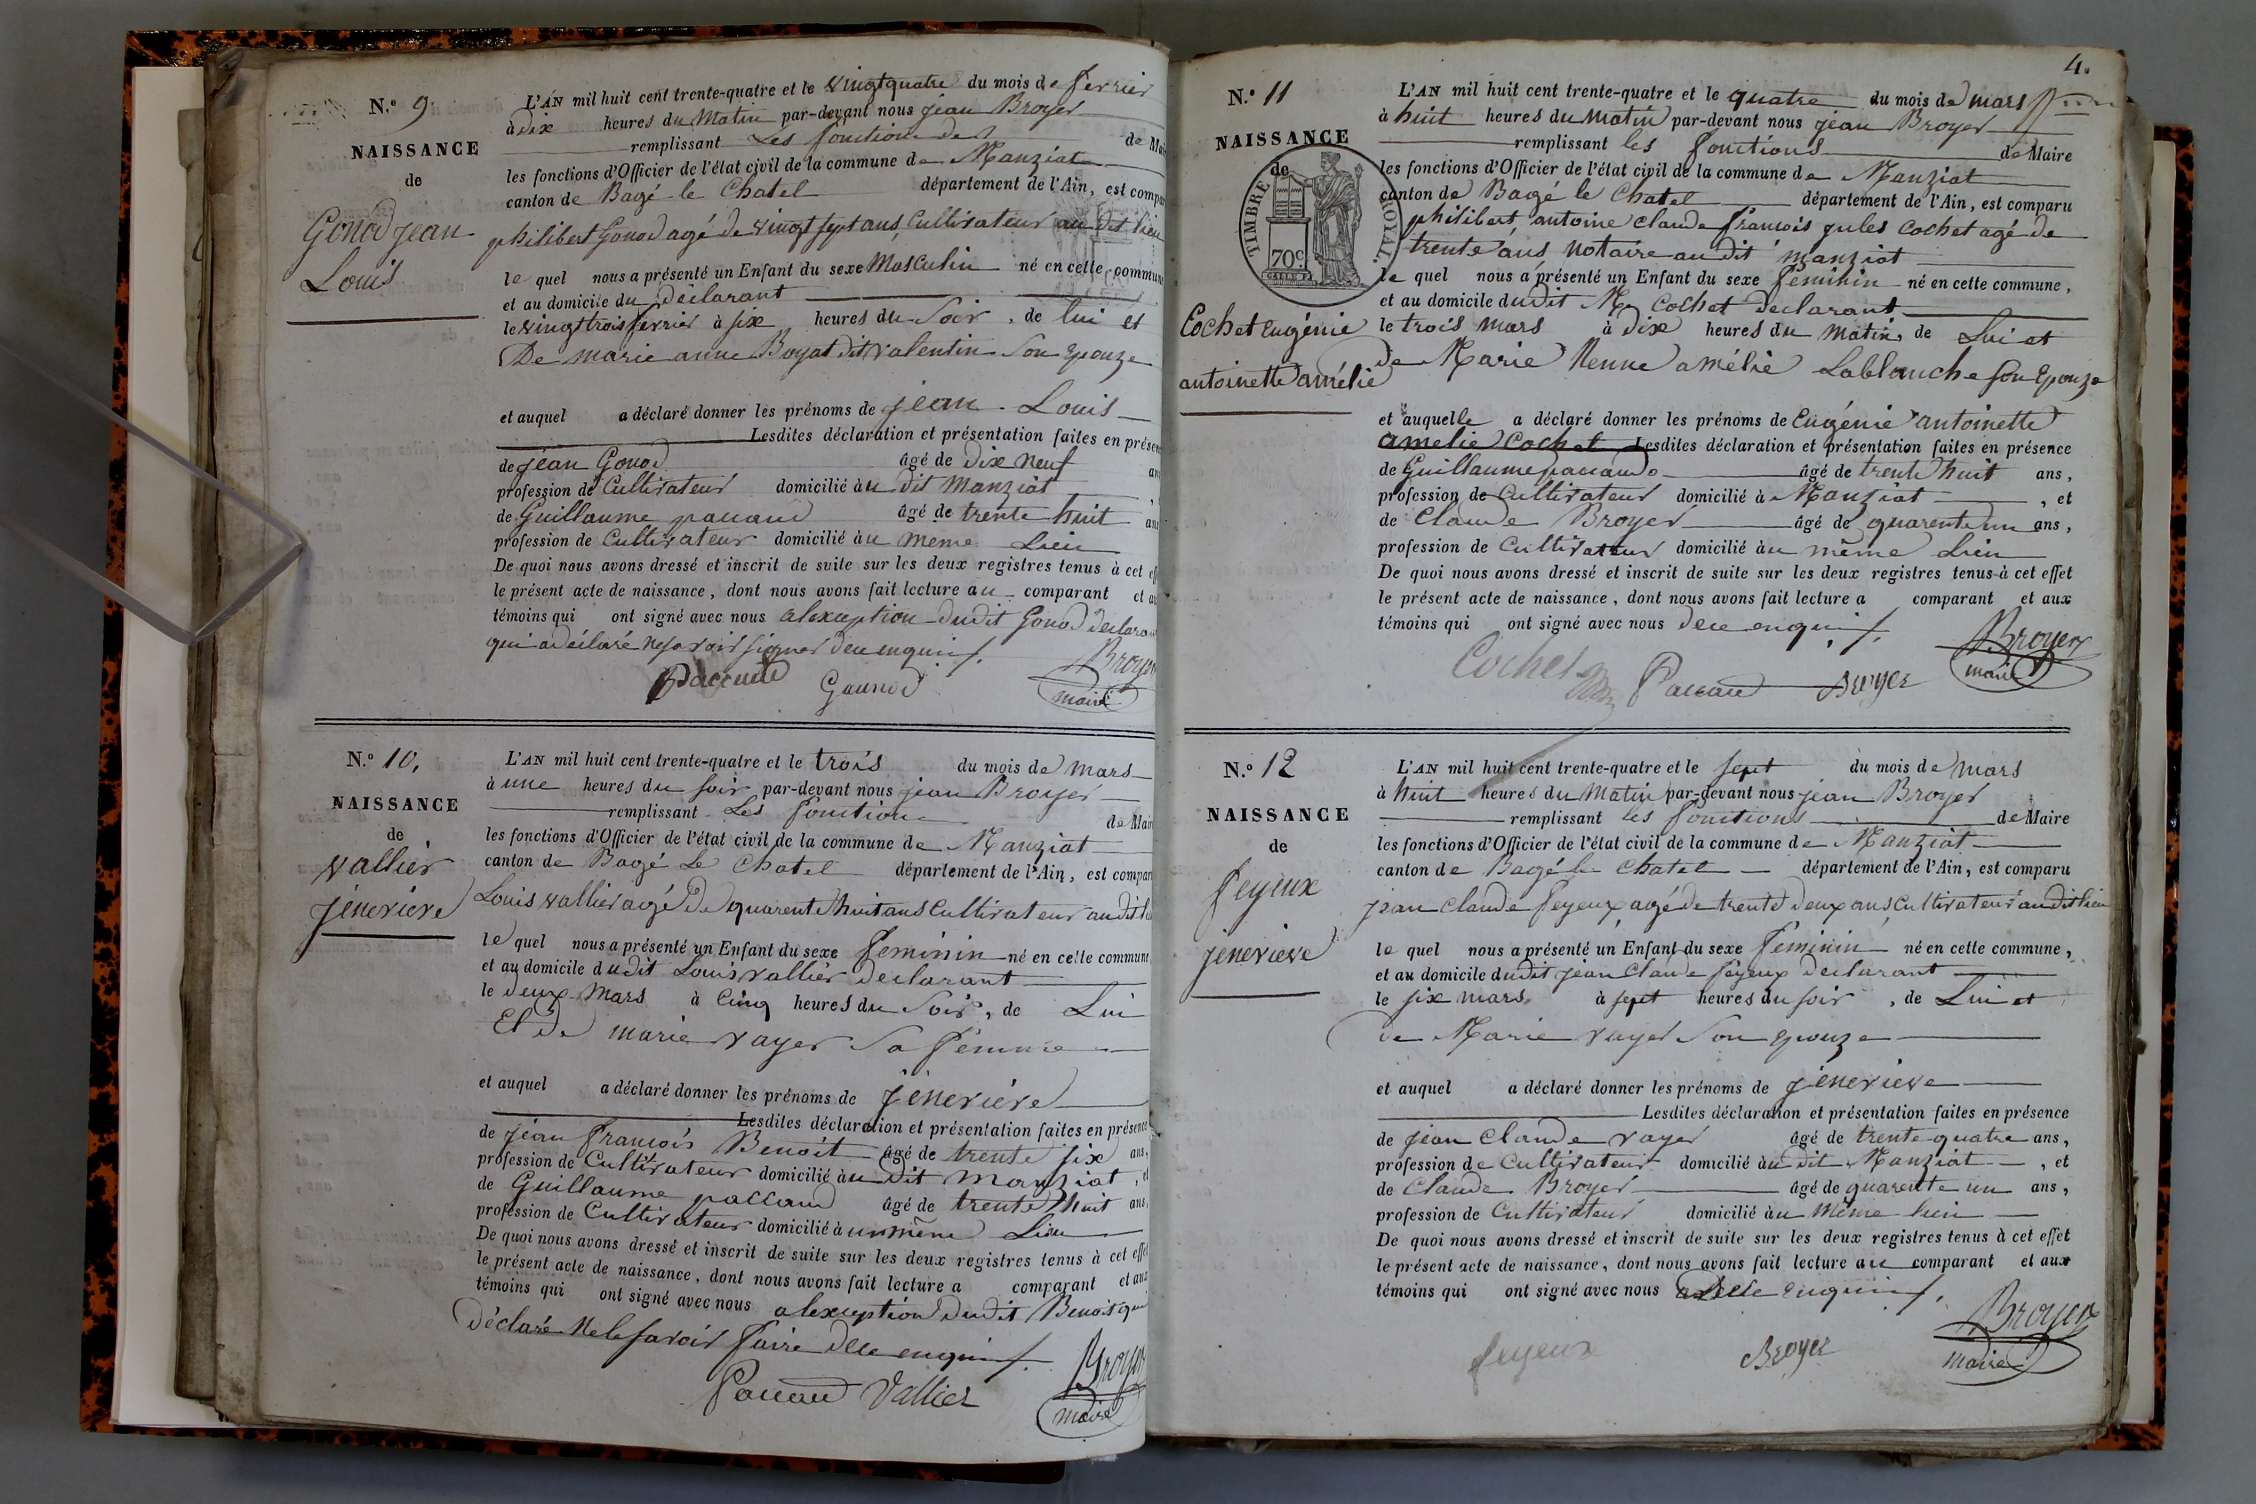 N.° 9
NAISSANCE
de
Gonod jean
Louis
L'AN mil huit cent trente-quatre et le vingtquatre du mois de fevrier
à dix heures du Matin par-devant nous jean Broyer
remplissant Les fonctions de Mai
les fonctions d'Officier de l'état civil de la commune de Manziat
canton de Bagé-le Chatel département de l'Ain, est compar
philibert Gonod agé de vingt sept ans, Cultivateur au dit lieu
le quel nous a présenté un Enfant du sexe Masculin né en cette commune
et au domicile du déclarant
le vingt trois fevrier à six heures du Soir, de lui et
De marie anne Boyat dit valentin son Epouze
et auquel a déclaré donner les prénoms de jean-Louis
Lesdites déclaration et présentation faites en présen
de jean Gonod âgé de dix neuf an
profession de Cultivateur domicilié au dit Manziat,
de Guillaume paccaud âgé de trente huit ans
profession de Cultivateur domicilié au meme Lieu
De quoi nous avons dressé et inscrit de suite sur les deux registres tenus à cet eff
le présent acte de naissance, dont nous avons fait lecture au comparant et au
témoins qui ont signé avec nous alexception dudit Gonod déclara
qui a déclaré ne savoir signer de ce enquis
Paccaud Gaunod Broyer
maire
N.° 10.
NAISSANCE
de
vallier
jéneviéve
L'AN mil huit cent trente-quatre et le trois du mois de mars
à une heures du soir par-devant nous jean Broyer
remplissant Les fonction de Mair
les fonctions d'Officier de l'état civil de la commune de Manziat
canton de Bagé Le Chatel département de l'Ain, est compar
Louis vallier agé De quarente huit ans Cultivateur au dit li
le quel nous a présenté un Enfant du sexe féminin né en cette commune
et au domicile dudit Louis vallier declarant
le deux Mars à Cinq heures du Soir, de Lui
Et de marie vayer Sa femme
et auquel a déclaré donner les prénoms de jéneviéve
Lesdites déclaration et présentation faites en présence
de jean francois Benoit âgé de trente six ans,
profession de Cultivateur domicilié au dit manziat, et
de Guillaume paccaud âgé de trente huit ans,
profession de Cultivateur domicilié à un même Lieu
De quoi nous avons dressé et inscrit de suite sur les deux registres tenus à cet effet
le présent acte de naissance, dont nous avons fait lecture a comparant et aux
témoins qui ont signé avec nous alexception dudit Benoit qui
déclare Ne le savoir faire de ce enquis
Paccaud Vallier Broyer
maire
4.
N.° 11
NAISSANCE
de
TIMBRE ROYAL.
70c
Cochet Eugénie
antoinette amélie
L'AN mil huit cent trente-quatre et le quatre du mois de mars
à huit heures du Matin par-devant nous jean Broyer
remplissant les fonctions de Maire
les fonctions d'Officier de l'état civil de la commune de Manziat
canton de Bagé le Chatel département de l'Ain, est comparu
philibert antoine claude francois jules cochet agé de
trente ans Notaire au dit manziat
le quel nous a présenté un Enfant du sexe féminin né en cette commune,
et au domicile dudit Me Cochet declarant
le trois mars à dix heures du matin, de Lui et
de Marie Nenne amélie Lablanche son Epouze
et auquelle a déclaré donner les prénoms de Eugénie antoinette
amelie Cochet Lesdites déclaration et présentation faites en présence
de Guillaume paccaud âgé de trente huit ans,
profession de Cultivateur domicilié à Manziat, et
de Claude Broyer âgé de quarente un ans,
profession de Cultivateur domicilié au même Lieu
De quoi nous avons dressé et inscrit de suite sur les deux registres tenus à cet effet
le présent acte de naissance, dont nous avons fait lecture a comparant et aux
témoins qui ont signé avec nous de ce enquis
Cochet Paccaud Broyer Broyer
maire
N.° 12
NAISSANCE
de
feyeux
jenevieve
L'AN mil huit cent trente-quatre et le sept du mois de mars
à huit heures du Matin par-devant nous jean Broyer
remplissant les fonctions de Maire
les fonctions d'Officier de l'état civil de la commune de Manziat
canton de Bagé le Chatel département de l'Ain, est comparu
jean claude feyeux agé de trente deux ans, Cultivateur au dit lieu
le quel nous a présenté un Enfant du sexe féminin né en cette commune,
et au domicile dudit jean claude feyeux declarant
le six mars à sept heures du soir, de Lui et
de Marie vayer Son epouze
et auquel a déclaré donner les prénoms de jenevieve
Lesdites déclaration et présentation faites en présence
de jean Claude vayer âgé de trente quatre ans,
profession de Cultivateur domicilié au dit Manziat, et
de Claude Broyer âgé de quarente un ans,
profession de Cultivateur domicilié au même lieu
De quoi nous avons dressé et inscrit de suite sur les deux registres tenus à cet effet
le présent acte de naissance, dont nous avons fait lecture au comparant et aux
témoins qui ont signé avec nous de ce enquis
feyeux Broyer Broyer
maire